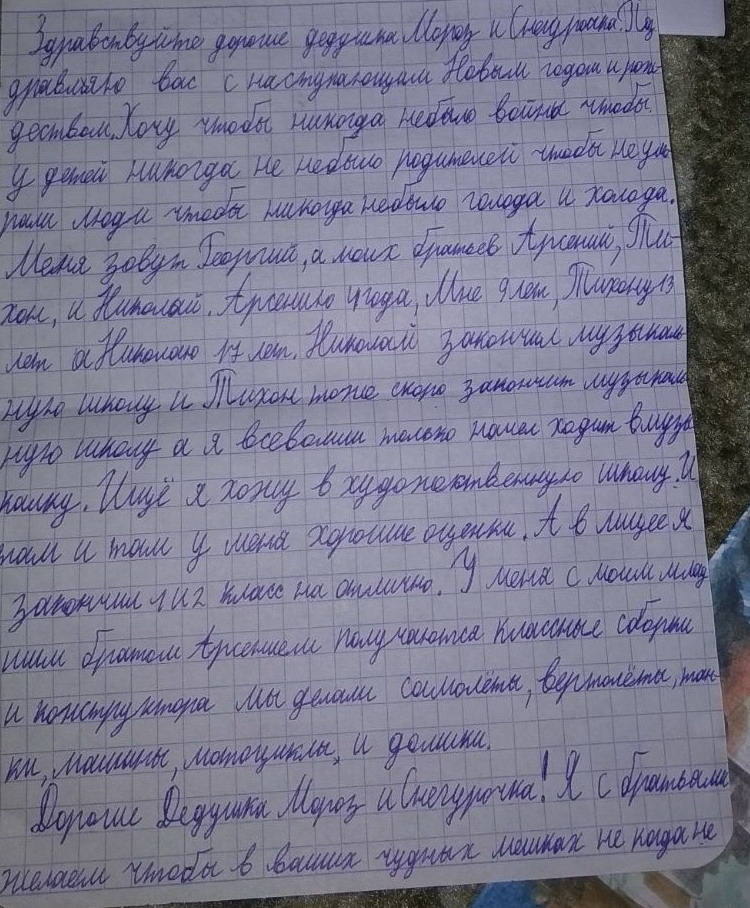 Здравствуйте дорогие дедушка Мороз и Снегурочка. Поз
дравляю вас с наступающим Новым годом и рож
деством. Хочу чтобы никогда небыло войны чтобы
у детей никогда не небыло родителей чтобы не уми
рали люди чтобы никогда небыло голода и холода.
Меня зовут Георгий, а моих братьев Арсений, Ти-
хон, и Николай. Арсению 4 года, Мне 9 лет, Тихону 13
лет а Николаю 17 лет. Николай закончил музыкаль
ную школу и Тихон тоже скоро закончит музыкаль
ную школу а я всеволишь только начел ходит в музы
калку. Ищё я хожу в художоственную школу. И
там и там у меня хорошие оценки. А в лицее я
закончил 1 и 2 класс на отлично. У меня с моим млад
шим братом Арсением получаются классные сборки
и конструктора мы делали самолёты, вертолёты, тан-
ки, машины, мотоциклы, и домики.
Дорогие Дедушка Мороз и Снегурочка! Я с братьями
желаем чтобы в ваших чудных мешках не когда не